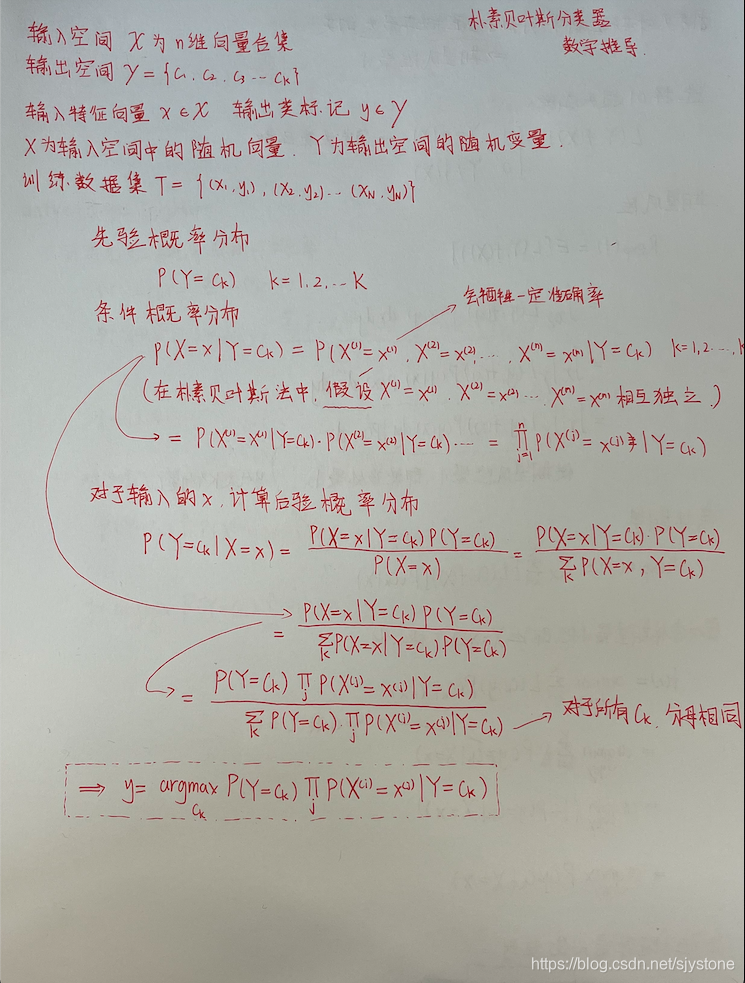 朴素贝叶斯分类器
数学推导.
输入空间 X 为n维向量合集
输出空间 Y = {c₁, c₂, c₃ … cₖ}
输入特征向量 x∈X 输出类标记 y∈Y
X为输入空间中的随机向量. Y为输出空间的随机变量.
训练数据集 T = {(x₁,y₁), (x₂,y₂)… (x_N,y_N)}
先验概率分布
P(Y=cₖ) k=1,2,…K
条件概率分布
会牺牲一定准确率
P(X=x|Y=cₖ) = P(X⁽¹⁾=x⁽¹⁾, X⁽²⁾=x⁽²⁾…, X⁽ⁿ⁾=x⁽ⁿ⁾|Y=cₖ) k=1,2…,K
(在朴素贝叶斯法中, 假设 X⁽¹⁾=x⁽¹⁾, X⁽²⁾=x⁽²⁾… X⁽ⁿ⁾=x⁽ⁿ⁾ 相互独立.)
= P(X⁽¹⁾=x⁽¹⁾|Y=cₖ)·P(X⁽²⁾=x⁽²⁾|Y=cₖ)… = ∏_{j=1}^{n} P(X⁽ʲ⁾=x⁽ʲ⁾|Y=cₖ)
对于输入的x, 计算后验概率分布
P(Y=cₖ|X=x) = P(X=x|Y=cₖ)P(Y=cₖ) / P(X=x) = P(X=x|Y=cₖ)·P(Y=cₖ) / ∑ₖ P(X=x, Y=cₖ)
= P(X=x|Y=cₖ)P(Y=cₖ) / ∑ₖ P(X=x|Y=cₖ)P(Y=cₖ)
= P(Y=cₖ)∏ⱼ P(X⁽ʲ⁾=x⁽ʲ⁾|Y=cₖ) / ∑ₖ P(Y=cₖ)·∏ⱼ P(X⁽ʲ⁾=x⁽ʲ⁾|Y=cₖ)
对于所有cₖ, 分母相同
⇒ y = argmax_{cₖ} P(Y=cₖ)∏ⱼ P(X⁽ʲ⁾=x⁽ʲ⁾|Y=cₖ)
https://blog.csdn.net/sjystone